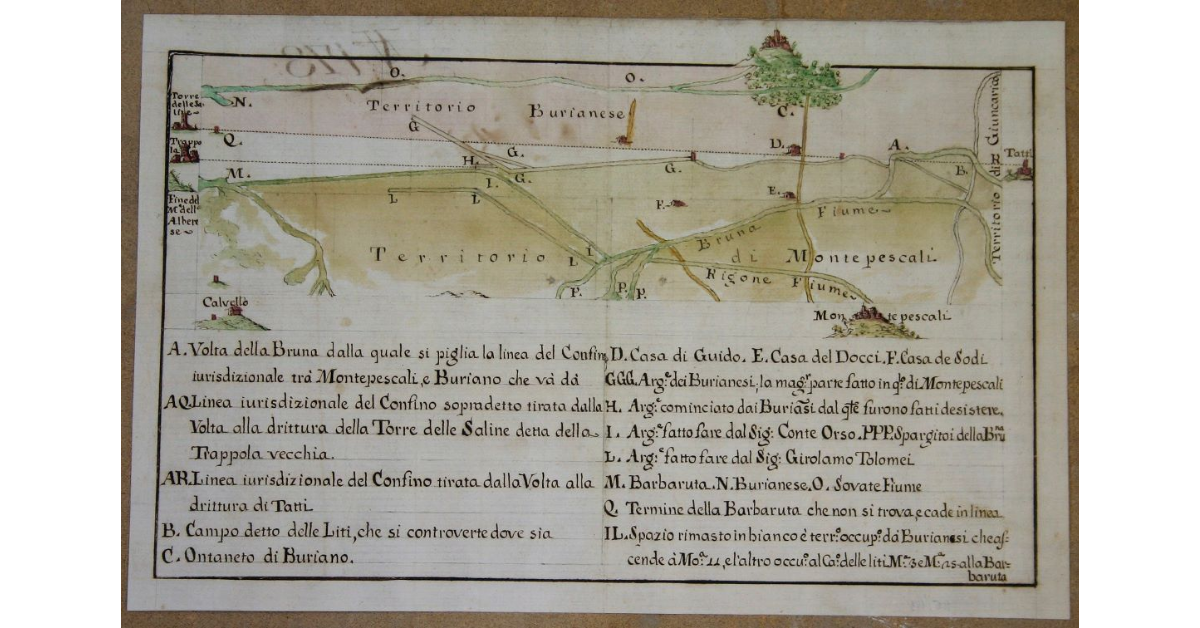 N. 1718
O.
O.
Torre
delle Sa
line
N.
Territorio
Burianese
C.
Territorio di Giuncarico
G
Q.
Trappo
la
D.
A.
R
Tatti
H.
G.
G.
G.
B.
M.
I.
L
L
E.
F.
Fine dd
M.e dell
Albere
se
Fiume
Bruna
I.
L
Territorio
di Montepescali
Rigone Fiume
P.
P.
P.
Calvello
Montepescali
A. Volta della Bruna dalla quale si piglia la linea del Confin
iurisdizionale trà Montepescali, e Buriano che và dà
AQ. Linea iurisdizionale del Confino sopradetto tirata dalla
Volta alla drittura della Torre delle Saline detta della
Trappola vecchia.
AR. Linea iurisdizionale del Confino tirata dalla Volta alla
drittura di Tatti
B. Campo detto delle Liti, che si controverte dove sia
C. Ontaneto di Buriano.
D. Casa di Guido. E. Casa del Docci. F. Casa de Sodi
GGG. Arg.e dei Burianesi, la mag.r parte fatto in q.lo di Montepescali
H. Arg.e cominciato dai Buria.si dal q.le furono fatti desistere.
I. Arg.e fatto fare dal Sig: Conte Orso. PPP. Spargitoi della Bru.na
L. Arg.e fatto fare dal Sig: Girolamo Tolomei
M. Barbaruta. N. Burianese. O. Sovate Fiume
Q. Termine della Barbaruta che non si trova, e cade in linea
IL. Spazio rimasto in bianco è terr.o occup.o dà Burianesi che as=
cende à Mo.a 11, e l'altro occu.o al Ca.o delle liti M.a 3 e M.a 15 alla Bar=
baruta